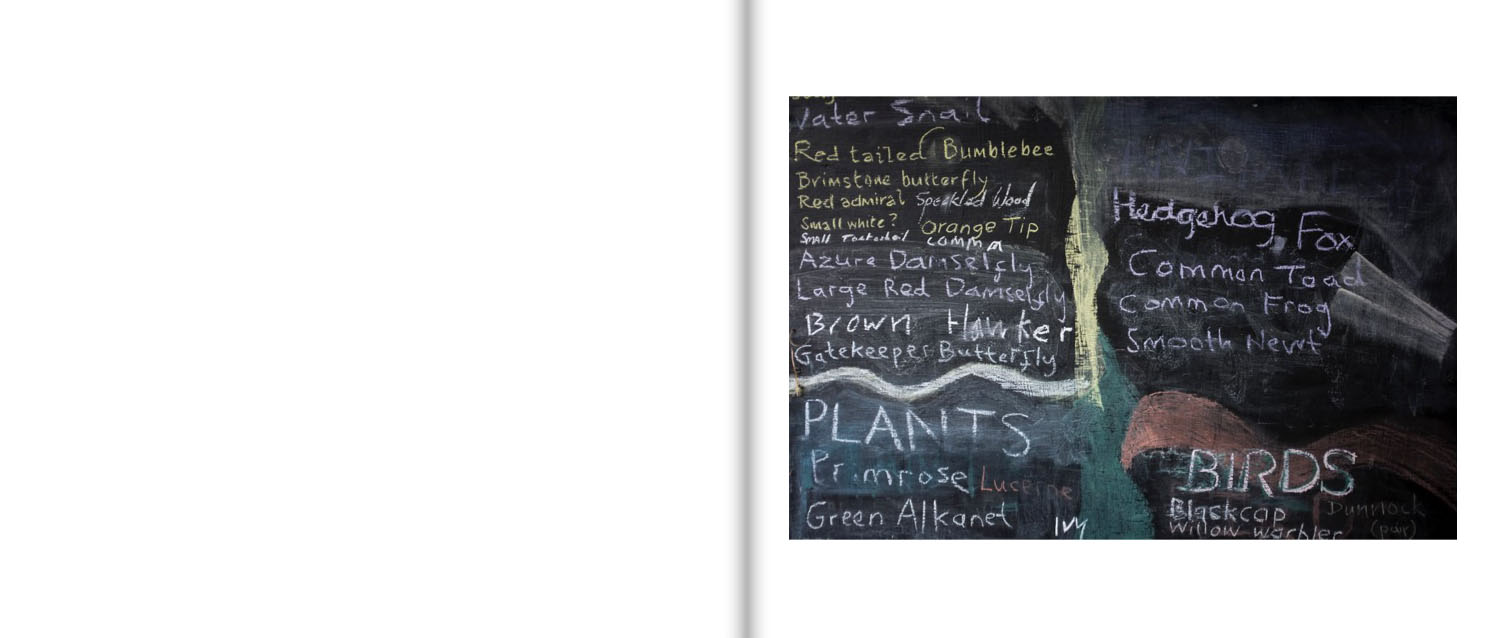 Water Snail
Red tailed Bumblebee
Brimstone butterfly
Red admiral Speckled Wood
Small white? Orange Tip
Small Tortoiseshell comma
Azure Damselfly
Large Red Damselfly
Brown Hawker
Gatekeeper Butterfly
PLANTS
Primrose Lucerne
Green Alkanet Ivy
Hedgehog, Fox
Common Toad
Common Frog
Smooth Newt
BIRDS
Blackcap Dunnock
Willow warbler (pair)